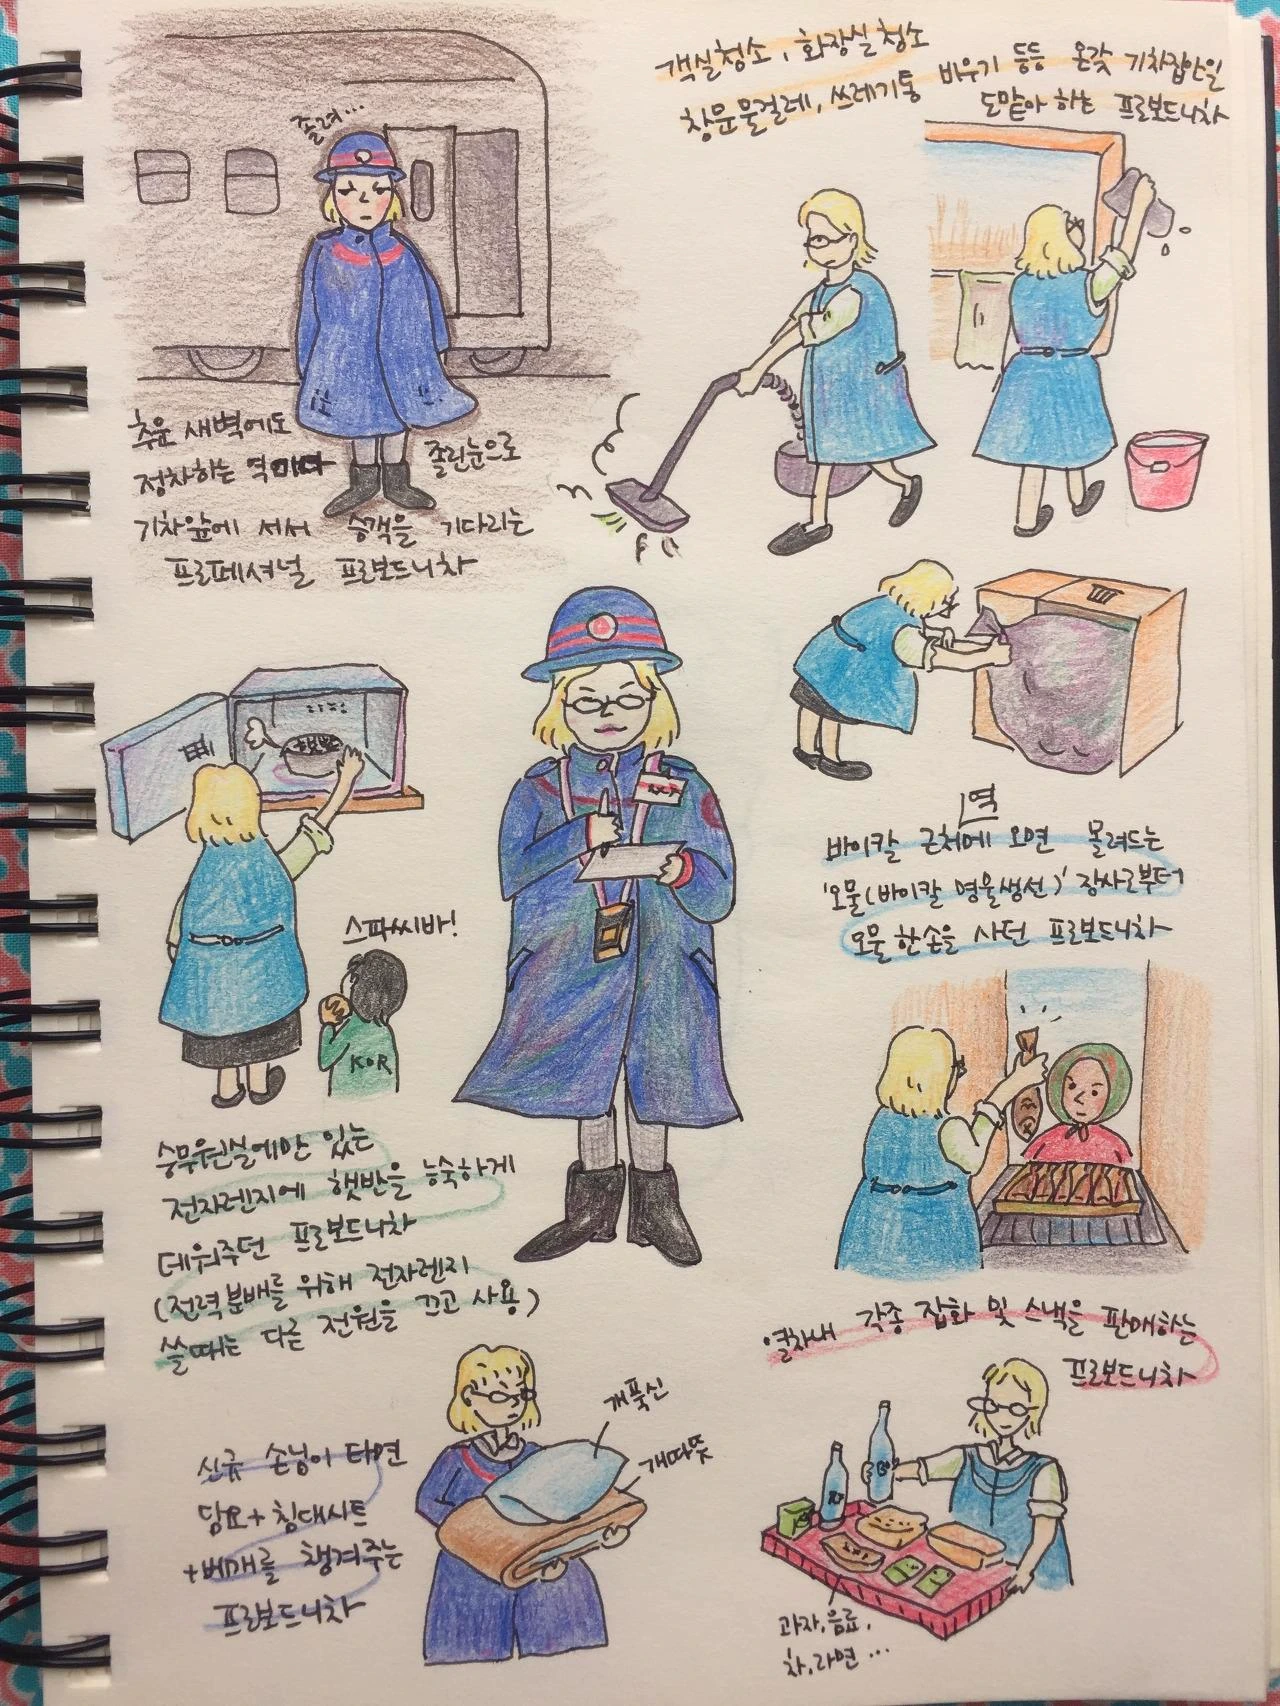 졸려...
추운 새벽에도
정차하는 역마다 졸린눈으로
기차앞에 서서 승객을 기다리는
프로페셔널 프로보드니차
객실청소, 화장실 청소
창문물걸레, 쓰레기통 비우기 등등 온갖 기차집안일
도맡아 하는 프로보드니차
삐
햇반
스파씨바!
KOR
승무원실에만 있는
전자렌지에 햇반을 능숙하게
데워주던 프로보드니차
(전력분배를 위해 전자렌지
쓸때는 다른 전원을 끄고 사용)
역
바이칼 근처에 오면 몰려드는
'오물(바이칼 명물생선)' 장사로부터
오물 한손을 사던 프로보드니차
열차내 각종 잡화 및 스낵을 판매하는
프로보드니차
과자, 음료,
차, 라면 ...
신규 손님이 타면
담요+침대시트
+베개를 챙겨주는
프로보드니차
개푹신
개따뜻